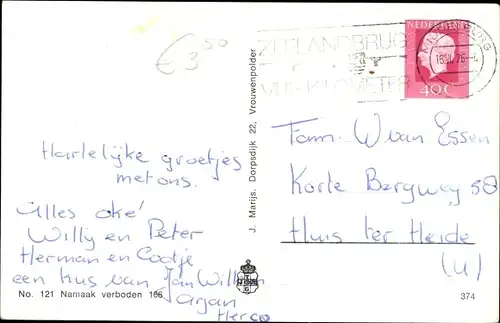 € 3 50
ZEELANDBRUG
KILOMETER
NEDERLAND
40 C
J. Marijs, Dorpsdijk 22, Vrouwenpolder
Hartelijke groetjes
met ons.
Alles oké
Willy en Peter
Herman en Cootje
een kus van Jan Willem
Arjan
Herco
Fam. W van Essen
Korte Bergweg 58
Huis ter Heide
(U)
No. 121 Namaak verboden 166
374